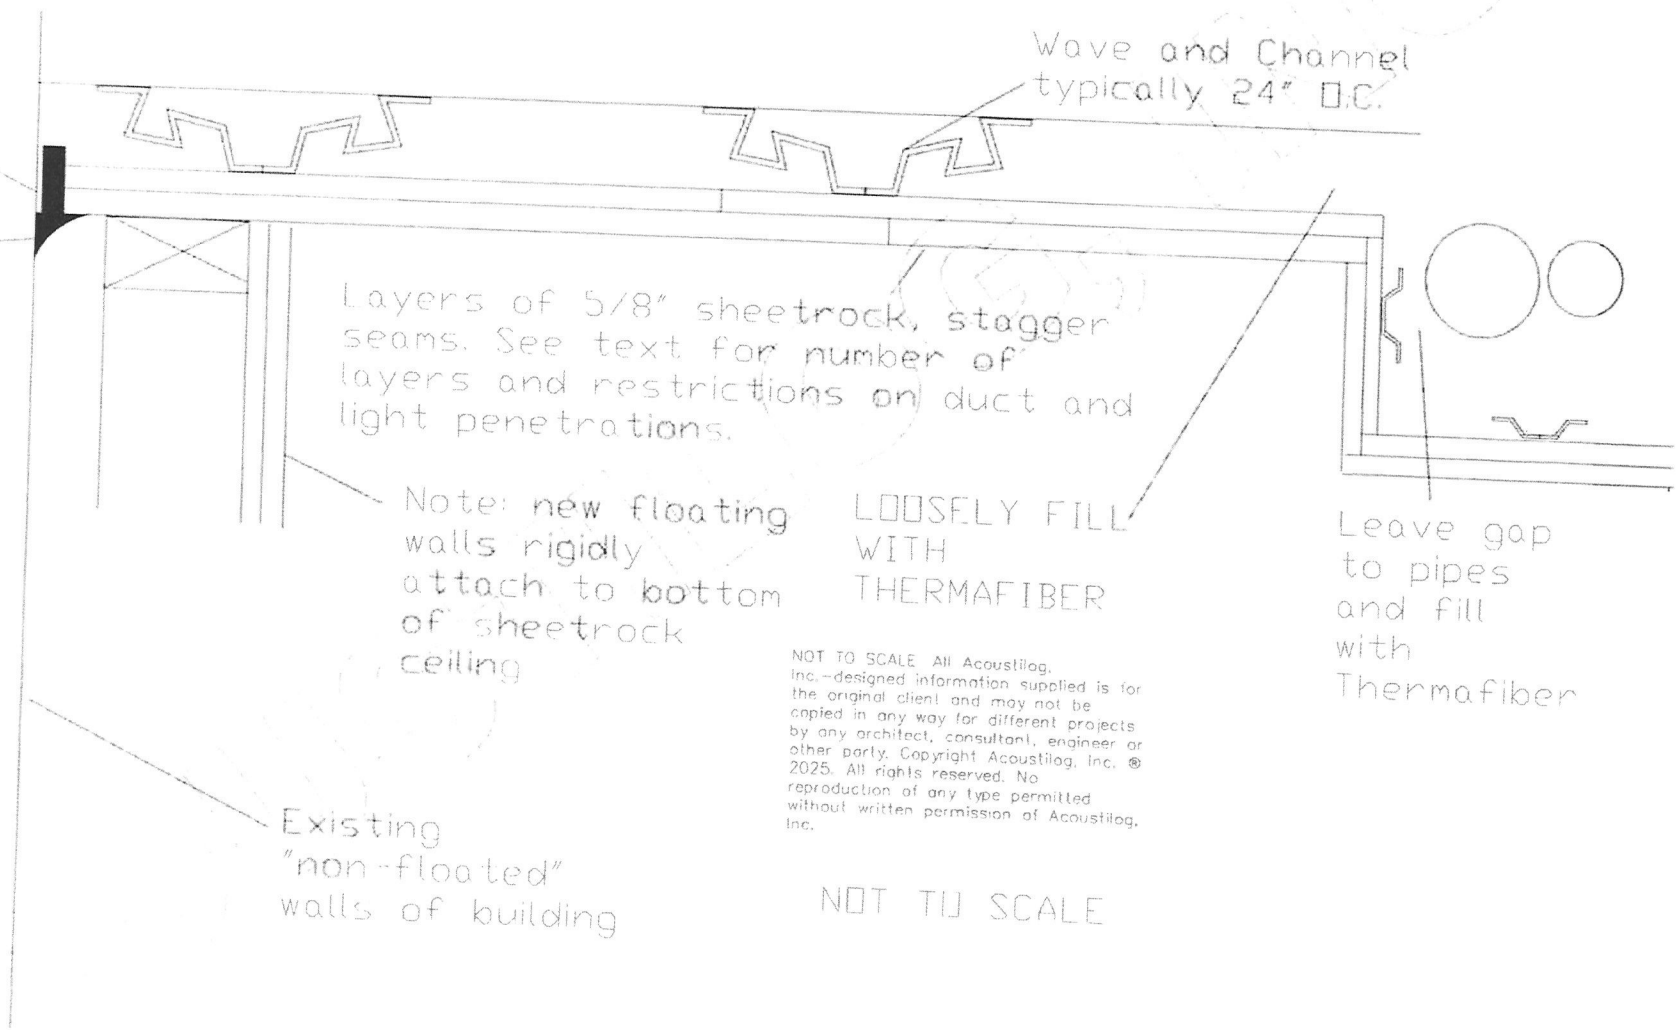 Wave and Channel
typically 24" O.C.
Layers of 5/8" sheetrock, stagger
seams. See text for number of
layers and restrictions on duct and
light penetrations.
Note: new floating
walls rigidly
attach to bottom
of sheetrock
ceiling
LOOSELY FILL
WITH
THERMAFIBER
Leave gap
to pipes
and fill
with
Thermafiber
NOT TO SCALE All Acoustilog,
Inc.-designed information supplied is for
the original client and may not be
copied in any way for different projects
by any architect, consultant, engineer or
other party. Copyright Acoustilog, Inc. ®
2025. All rights reserved. No
reproduction of any type permitted
without written permission of Acoustilog,
Inc.
Existing
"non-floated"
walls of building
NOT TO SCALE